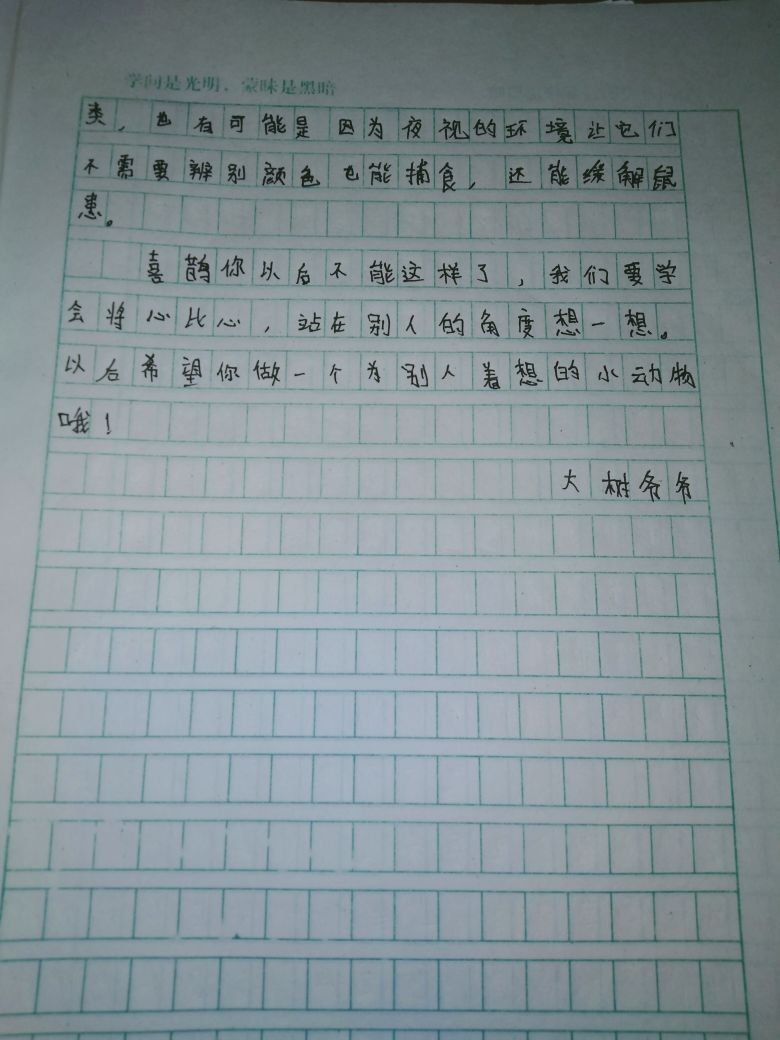 学问是光明，蒙昧是黑暗
类，也有可能是因为夜视的环境让它们
不需要辨别颜色也能捕食，还能缓解鼠
患。
喜鹊你以后不能这样了，我们要学
会将心比心，站在别人的角度想一想。
以后希望你做一个为别人着想的小动物
哦！
大树爷爷